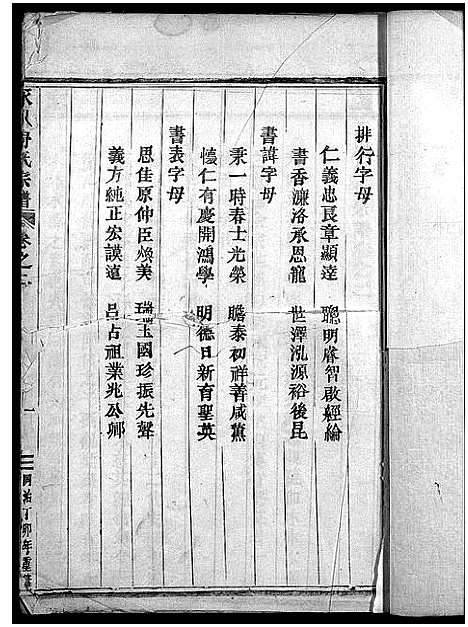 排行字母
仁義忠良章顯達 聰明睿智啟經綸
書香濂洛承恩寵 世澤泓源裕後昆
書諱字母
秉一時春士光榮 瞻泰初祥善咸薰
懷仁有慶開鴻學 明德日新育聖英
書表字母
思佳原仲臣煥美 瑞玉國珍振先聲
義方純正宏謨遠 呂占祖業兆公卿
氏宗譜 卷之 一
同治丁卯年重